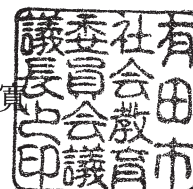 寛
有田市
社会教育
委員会議
議長之印